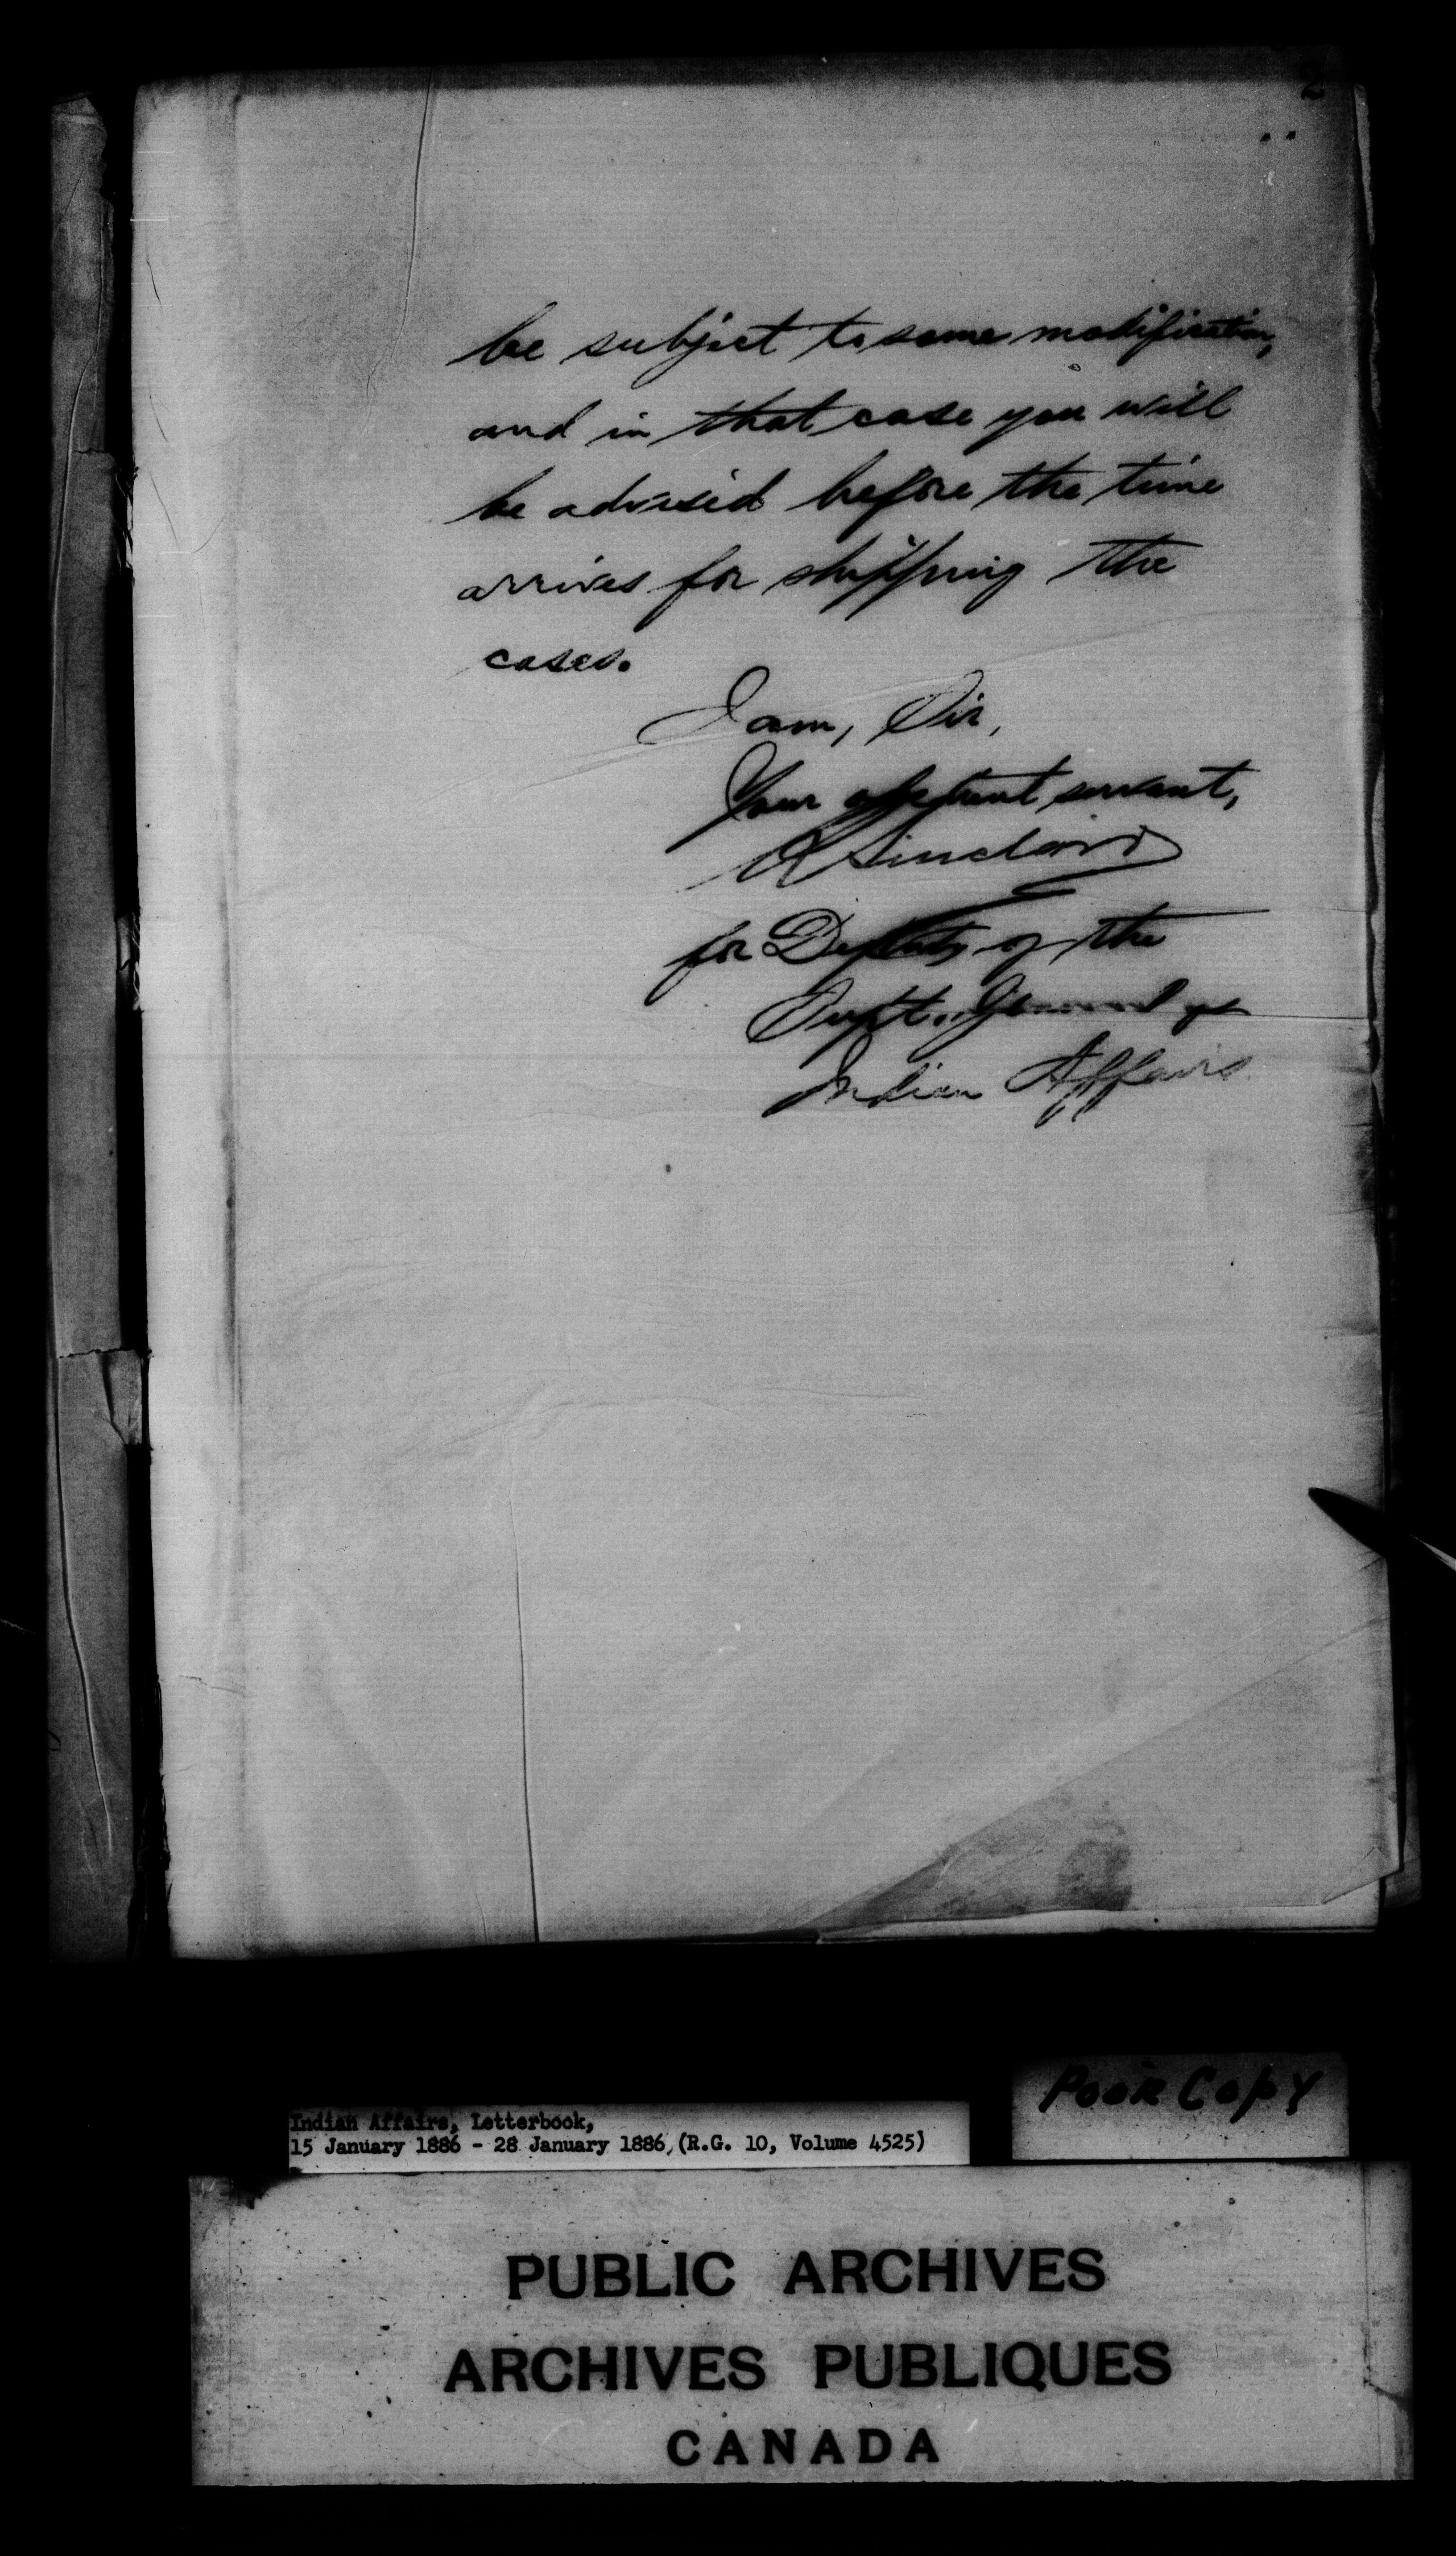 2
be subject to some modification,
and in that case you will
be advised before the time
arrives for shipping the
cases.
I am, Sir,
Your obedient servant,
R Sinclair
for Deputy of the
Supt. General of
Indian Affairs
Poor Copy
Indian Affairs, Letterbook,
15 January 1886 - 28 January 1886, (R.G. 10, Volume 4525)
PUBLIC ARCHIVES
ARCHIVES PUBLIQUES
CANADA